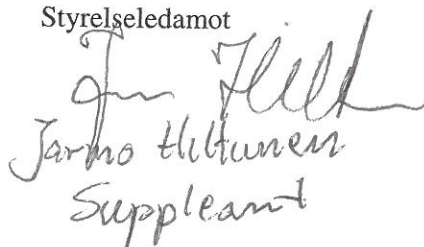 Styrelseledamot
Jarmo Hiltunen
Suppleant